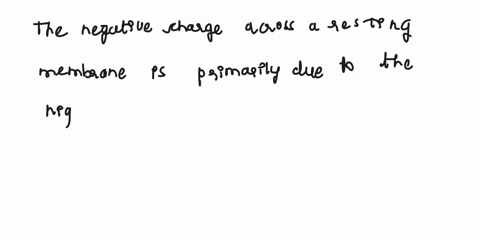 The negative charge across a resting
membrane is primarily due to the
hig